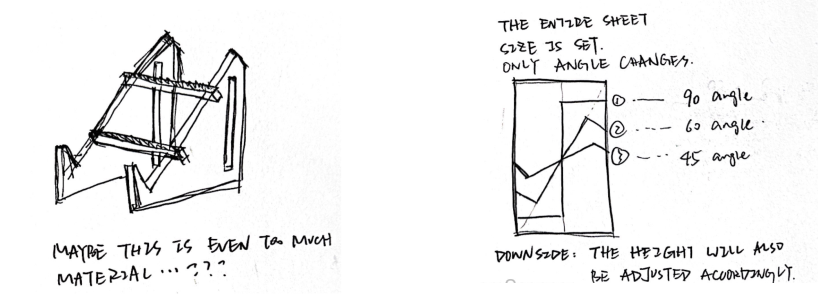 MAYBE THIS IS EVEN TOO MUCH
MATERIAL ... ???
THE ENTIRE SHEET
SIZE IS SET.
ONLY ANGLE CHANGES.
① --- 90 angle
② --- 60 angle.
③ --- 45 angle
DOWNSIDE: THE HEIGHT WILL ALSO
BE ADJUSTED ACCORDINGLY.